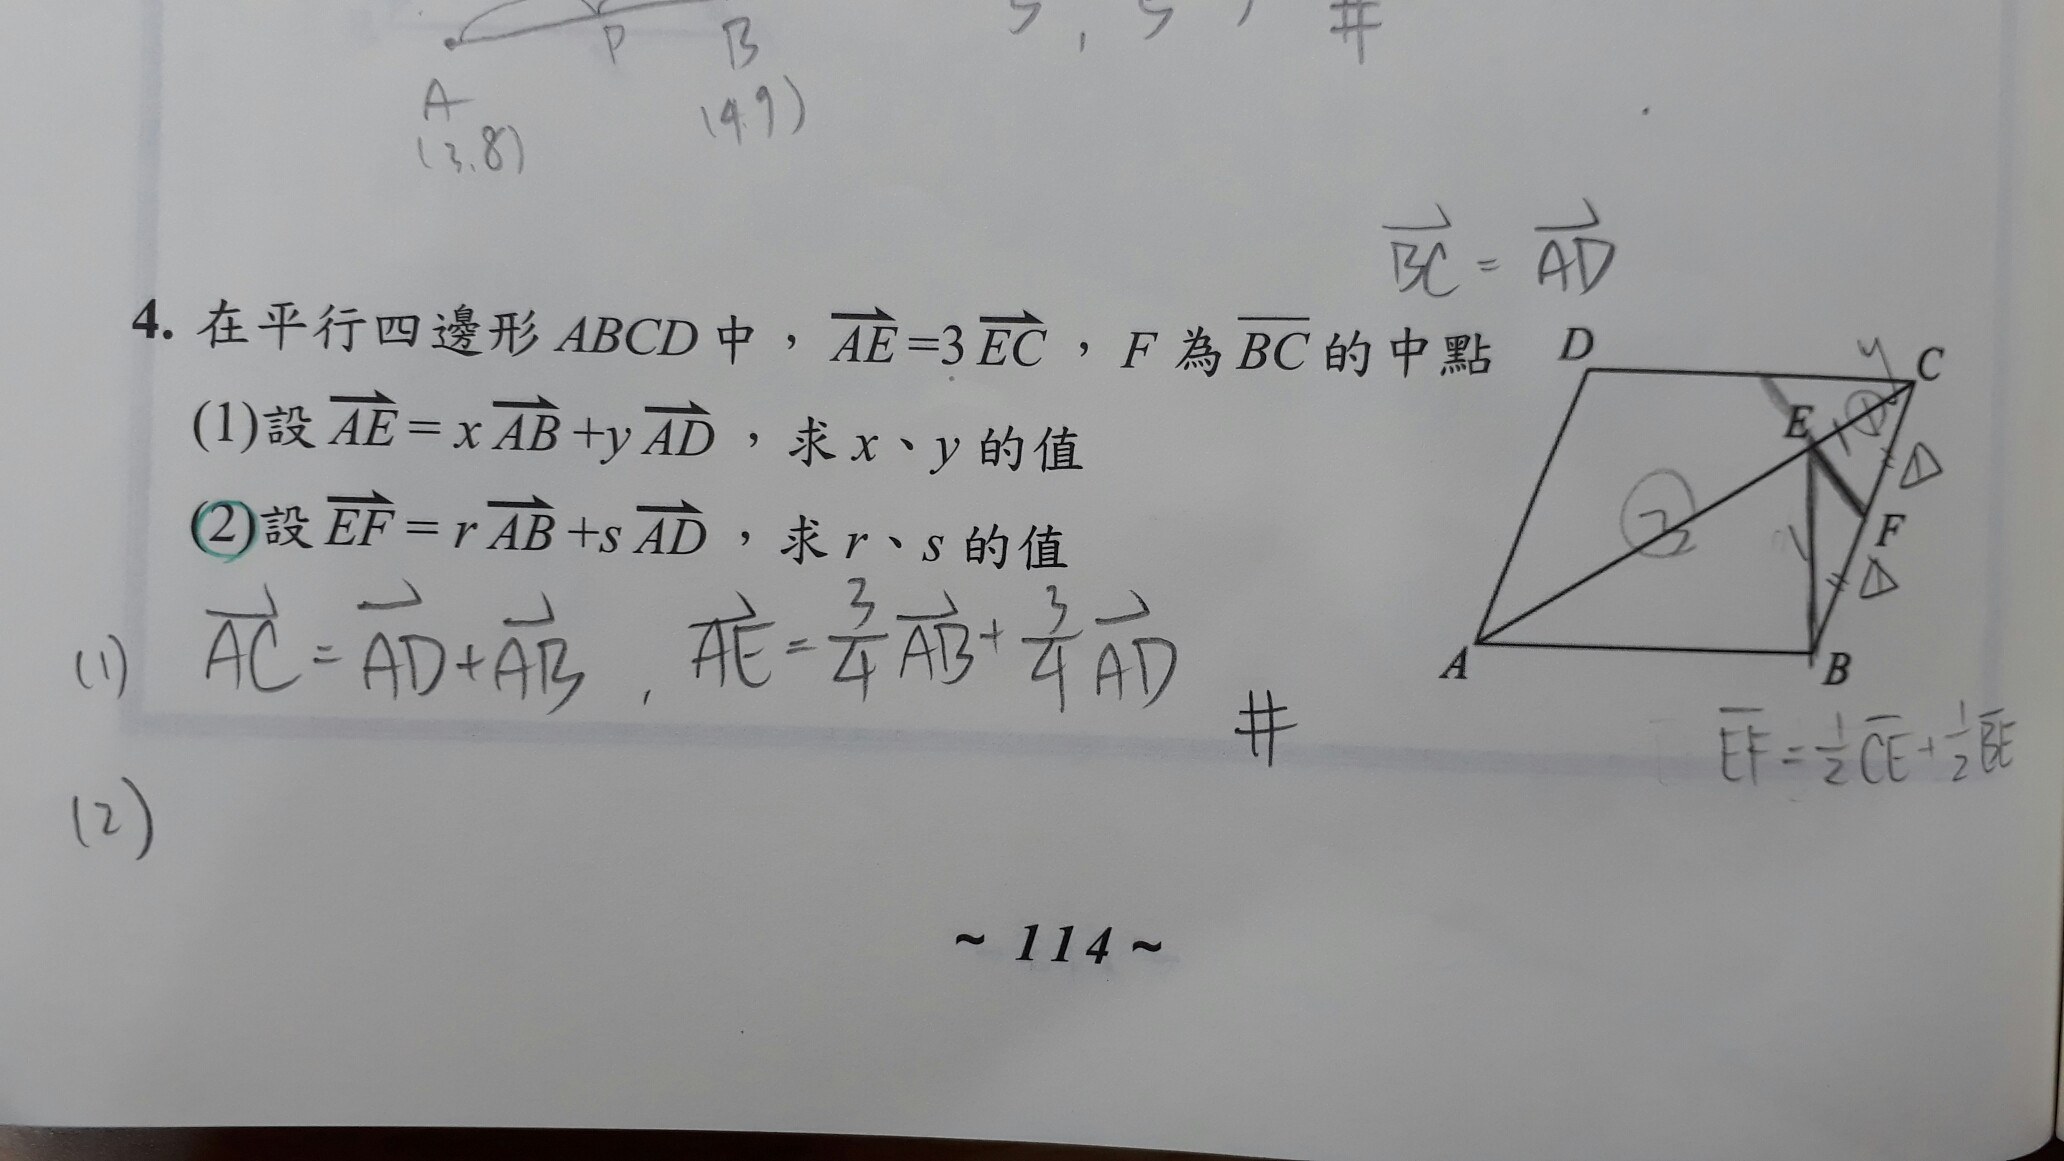 P B
A
(3.8) (4.9)
#
BC = AD
4. 在平行四邊形 ABCD 中，AE=3EC，F 為 BC 的中點
(1)設 AE = x AB + y AD，求 x、y 的值
(2)設 EF = r AB + s AD，求 r、s 的值
D C
E
F
A B
(1) AC = AD + AB , AE = 3/4 AB + 3/4 AD #
EF = 1/2 CE + 1/2 BE
(2)
~ 114 ~